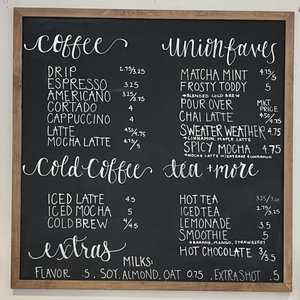 coffee
DRIP 2.75/3.25
ESPRESSO 3.25
AMERICANO 3.25/3.75
CORTADO 4
CAPPUCCINO 4
LATTE 4.25/4.75
MOCHA 4.75/
union faves
MATCHA MINT 4.75/5
FROSTY TODDY 5
→BLENDED COLD BREW
POUR OVER MKT PRICE
CHAI LATTE 4.25/4.75
SWEATER WEATHER 4.75
→CINNAMON, MAPLE LATTE
SPICY MOCHA 4.75
→MOCHA LATTE W/CAYENNE & CINNAMON
Cold Coffee
ICED LATTE 4.5
ICED MOCHA 5
COLD BREW 4/4.5
tea + more
HOT TEA 3.25
ICED TEA 2.75/3.25
LEMONADE 3.5
SMOOTHIE 5
→BANANA, MANGO, STRAWBERRY
HOT CHOCOLATE 3/3.5
extras
MILKS:
FLAVOR .5, SOY, ALMOND, OAT 0.75, EXTRA SHOT .5